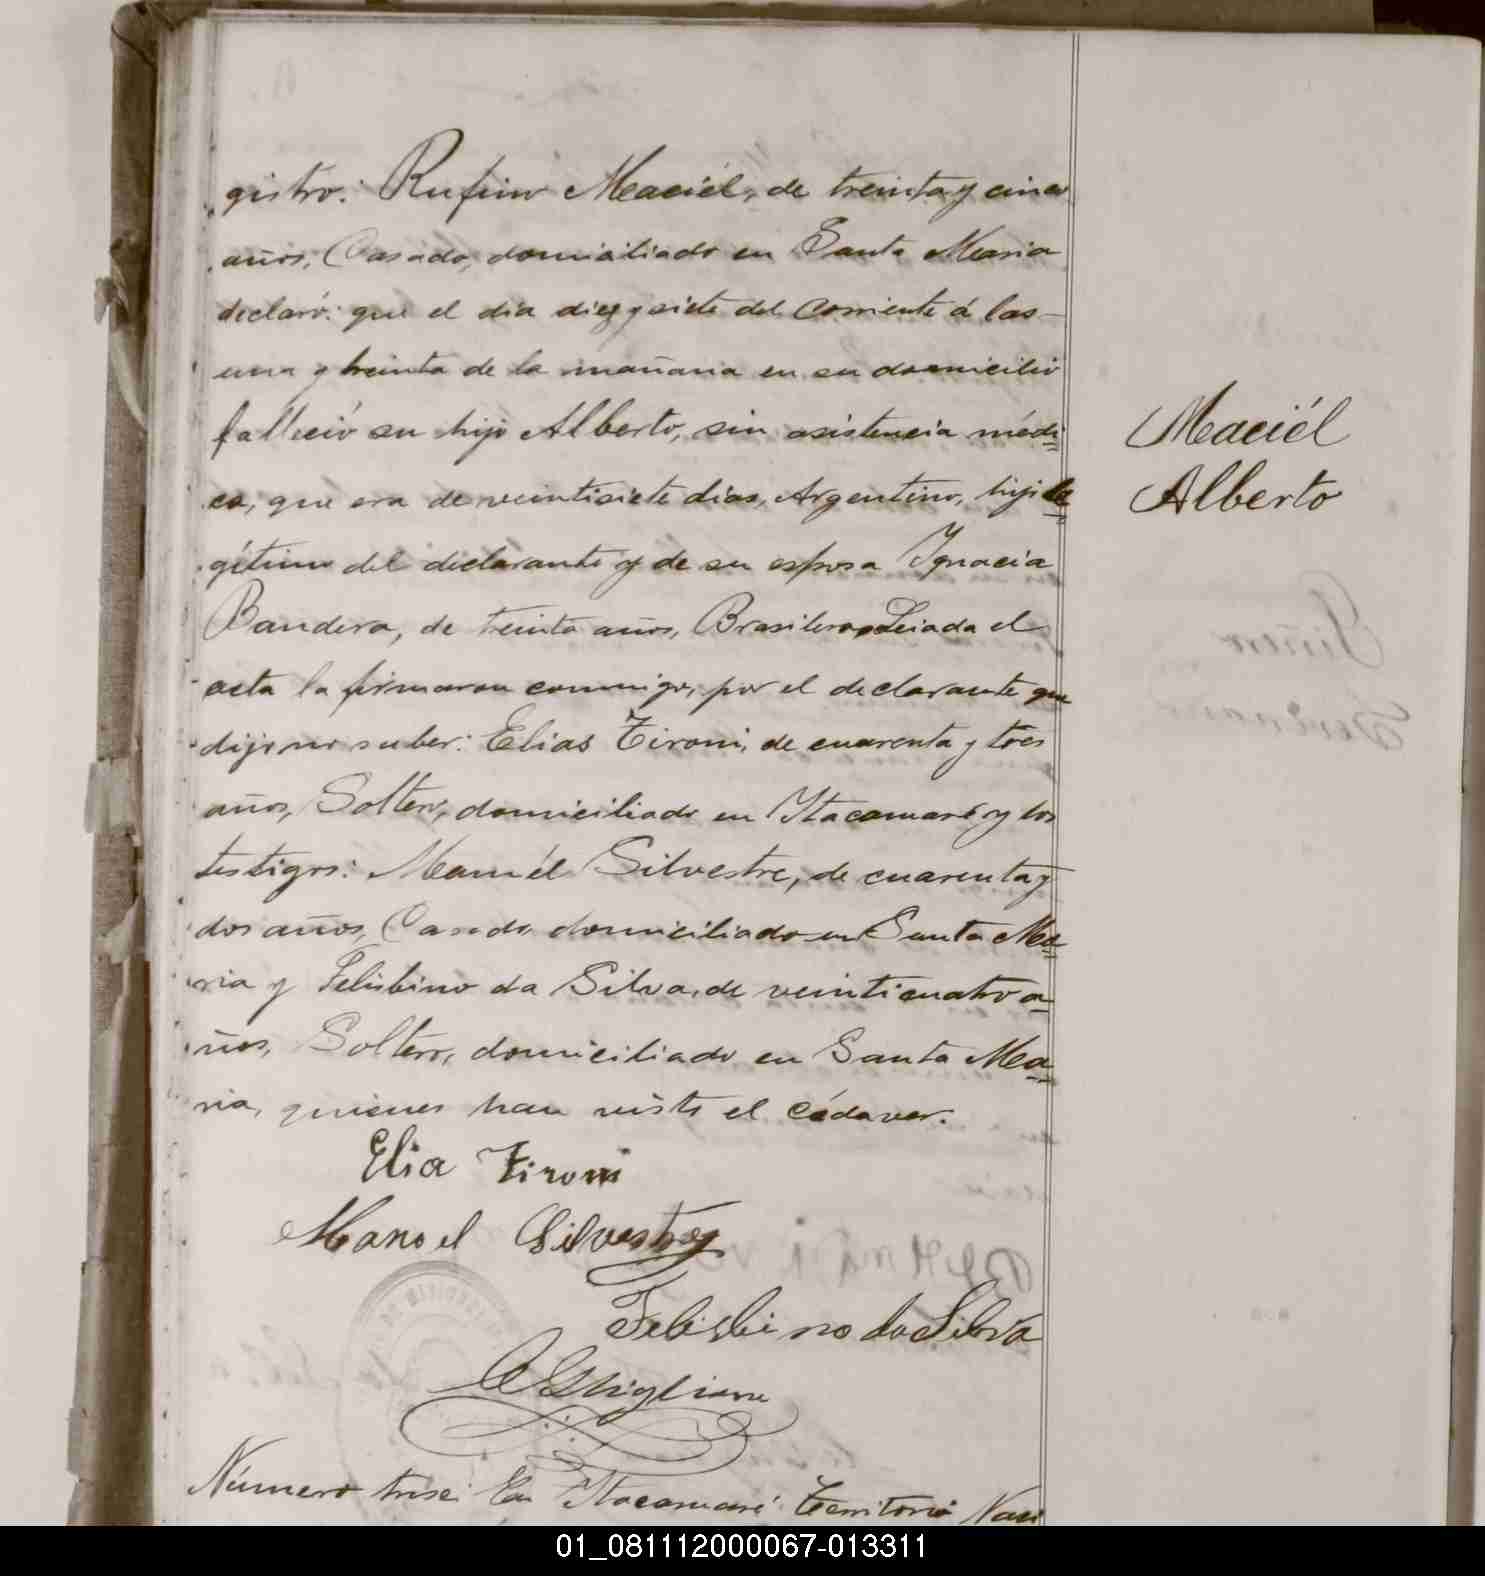 gistro: Rufino Maciél, de treinta y cinco
años, Casado, domiciliado en Santa Maria
declaró: que el dia diez y siete del corriente á las
una y treinta de la mañana en su domicilio
falleció su hijo Alberto, sin asistencia médi
ca, que era de veintisiete dias, Argentino, hijo le
gítimo del declarante y de su esposa Ygnacia
Bandera, de treinta años, Brasilera. Leiada el
acta la firmaron conmigo, por el declarante que
dijo no saber: Elias Tironi, de cuarenta y tres
años, Soltero, domiciliado en Itacaruaré y los
testigos: Manuél Silvestre, de cuarenta y
dos años, Casado domiciliado en Santa Ma
ria y Felisbino da Silva, de veinticuatro a
ños, Soltero, domiciliado en Santa Ma
ria, quienes han visto el cádaver.
Maciél
Alberto
Elia Tironi
Manoel Silvestre
Felisbino da Silva
Número trese: En Itacaruaré Territorio Naci
01_081112000067-013311